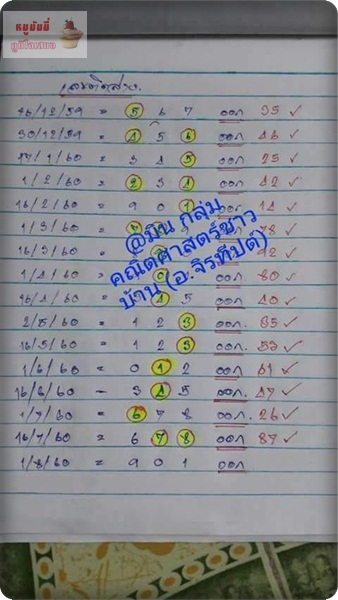 หมูบัมมี่
ภูมิใจเสนอ
เลขติดสาม.
16/12/59 = 5 6 7 ออก 35 ✓
30/12/59 = 4 5 6 ออก 46 ✓
17/1/60 = 3 4 5 ออก 25 ✓
1/2/60 = 2 3 4 ออก 42 ✓
16/2/60 = 9 0 1 ออก 14 ✓
1/3/60 = 7 78 ✓
16/3/60 = 92 ✓
1/4/60 = 0 80 ✓
16/4/60 = 4 5 ออก 40 ✓
2/5/60 = 1 2 3 ออก. 35 ✓
16/5/60 = 1 2 3 ออก. 53 ✓
1/6/60 = 0 1 2 ออก 61 ✓
16/6/60 = 3 4 5 ออก. 47 ✓
1/7/60 = 6 7 8 ออก. 26 ✓
16/7/60 = 6 7 8 ออก 87 ✓
1/8/60 = 9 0 1 ออก
@มิน กลุ่ม
คณิตศาสตร์ชาว
บ้าน (อ.จิรทีปต์)